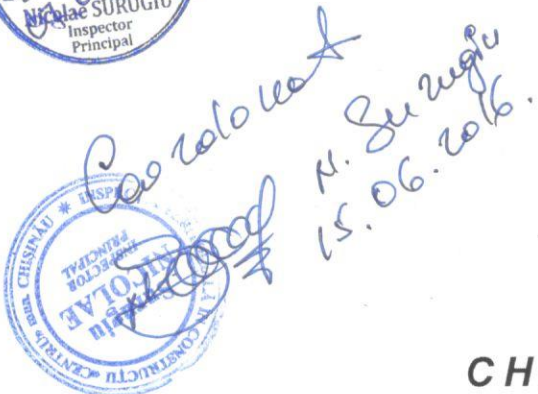 Nicolae SURUGIU
Inspector
Principal
Coordonat
N. Surugiu
15.06.2016.
CHIȘINĂU * INSPE
LĂ ÎN CONSTRUCȚII «CENTRU» mun.
Surugiu
NICOLAE
INSPECTOR
PRINCIPAL
CH